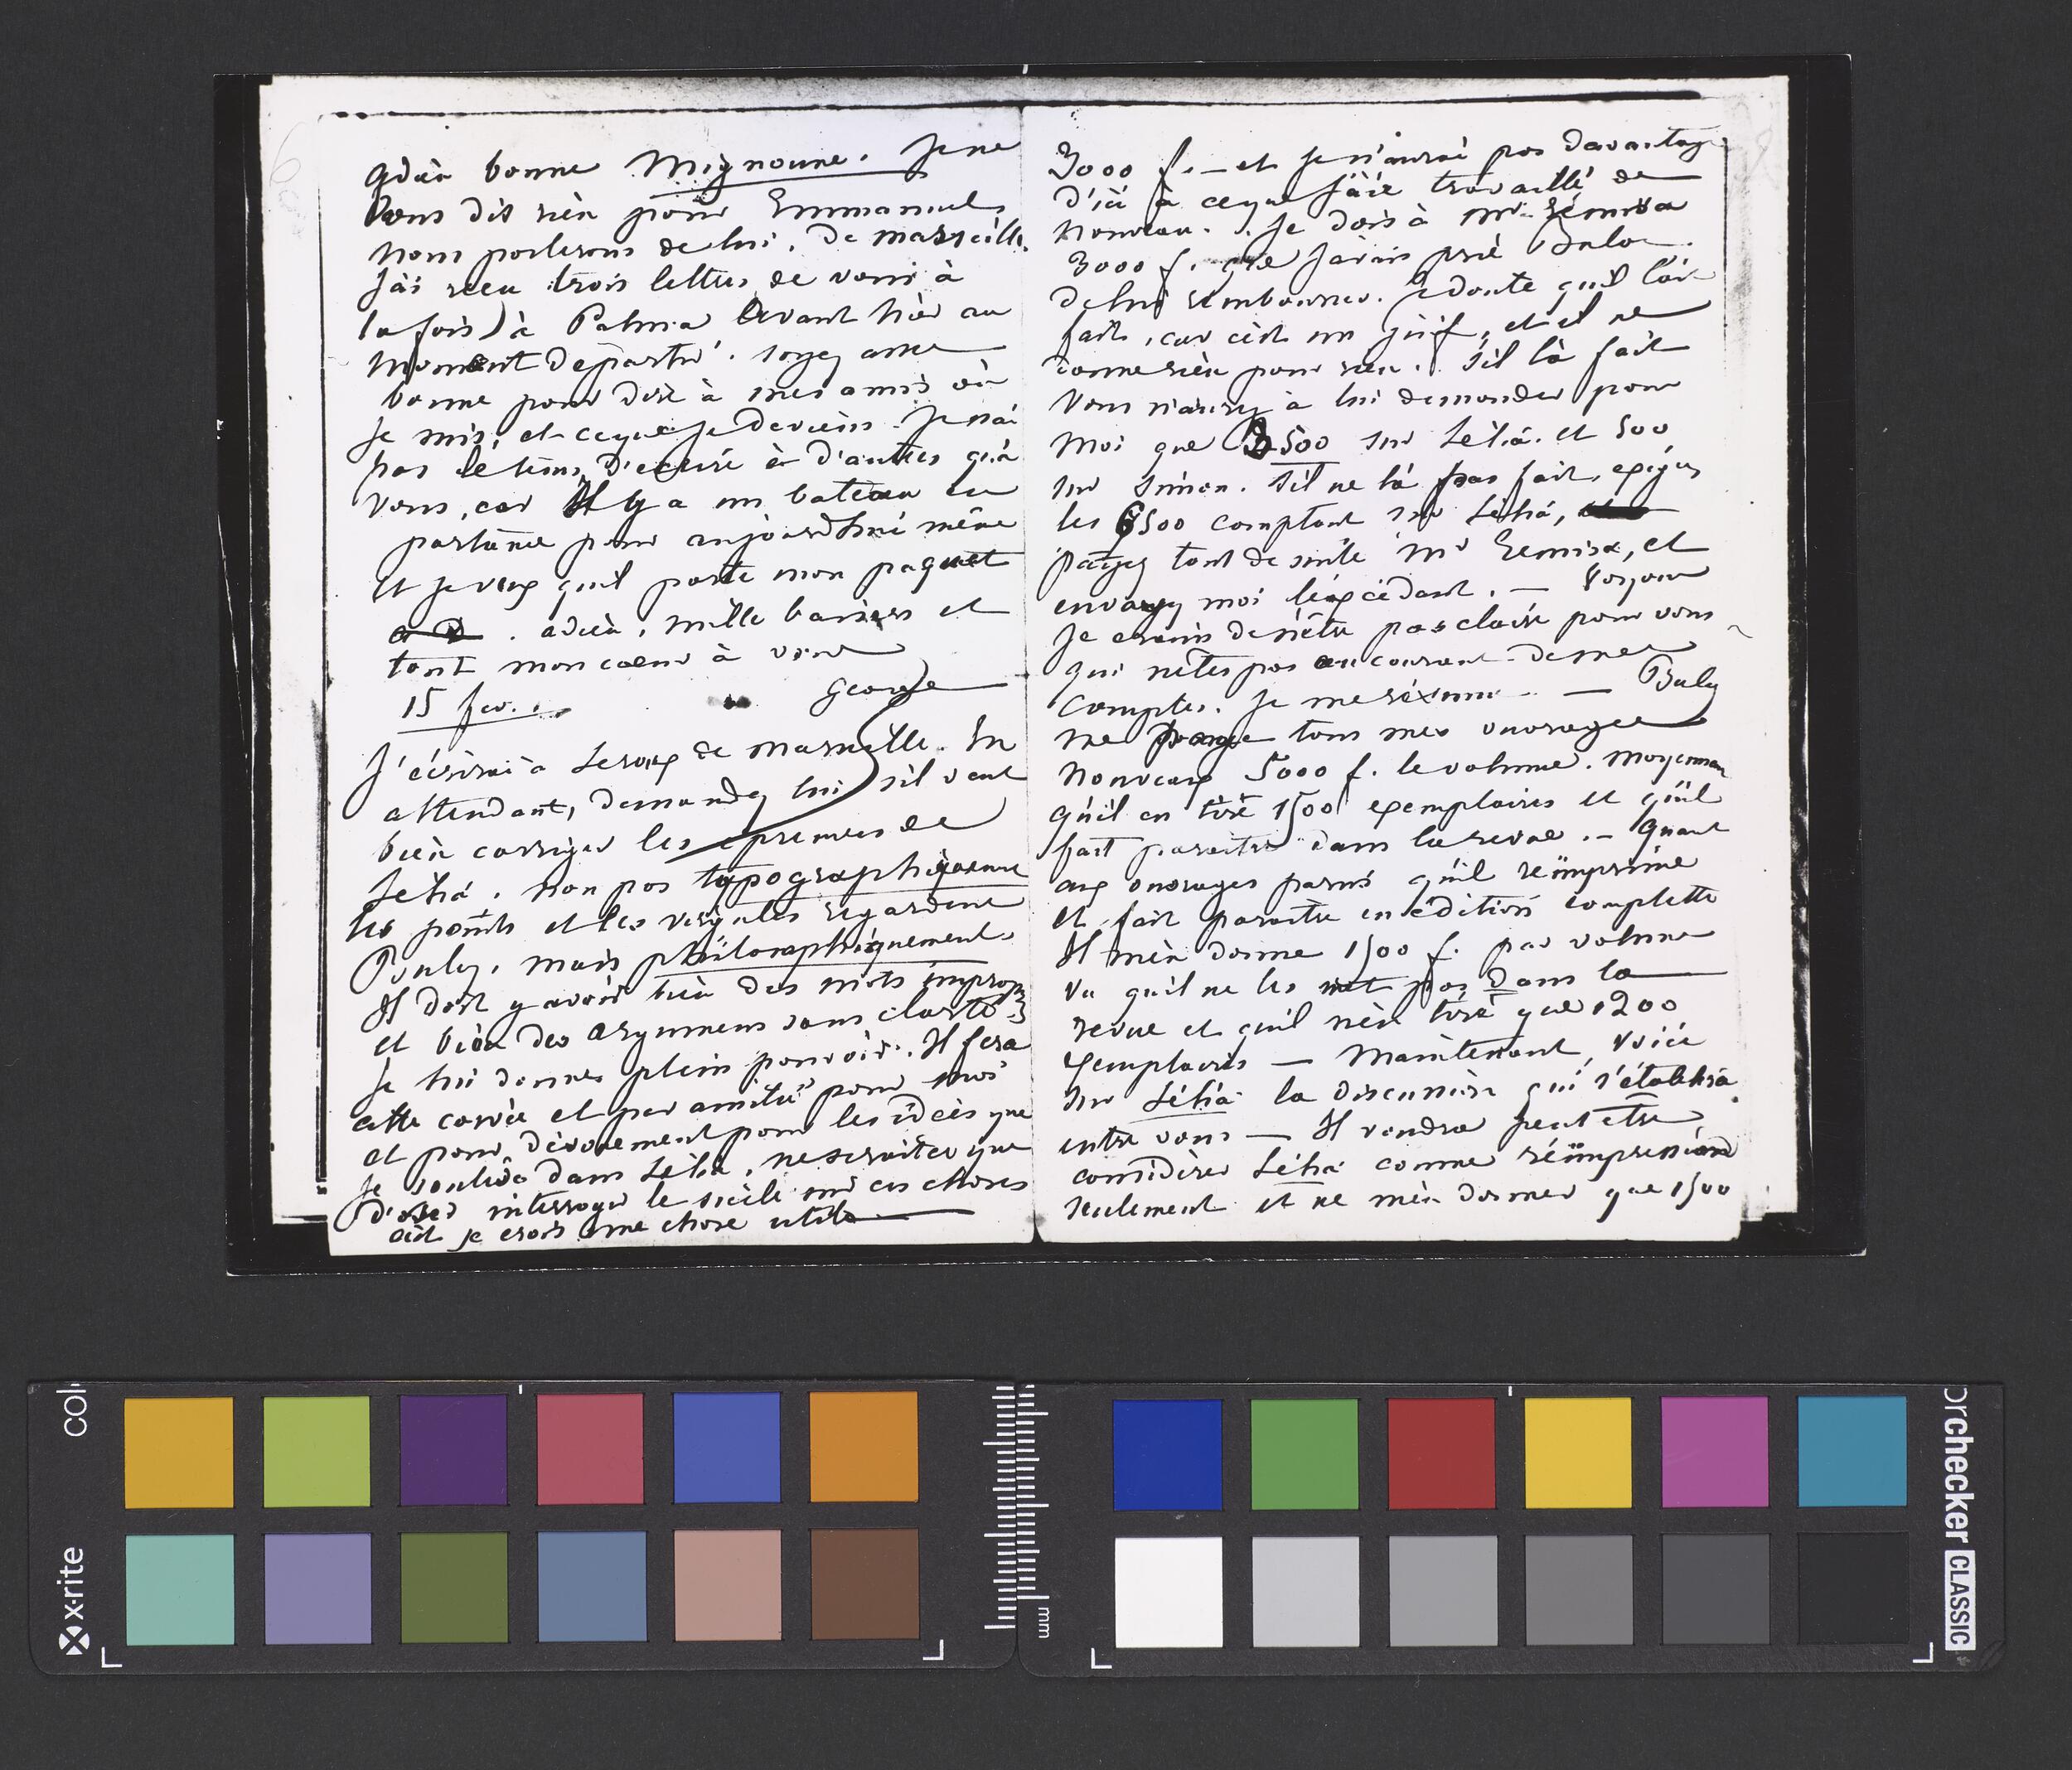 adieu bonne Mignoune. Je ne
vous dis rien pour Emmanuel,
nous parlerons de lui. De marseille.
J'ai reçu trois lettres de vous à
la fois) à Palma avant hier au
moment de partir. soyez assez
bonne pour dire à mes amis où
je suis, et ce que je deviens. Je n'ai
pas le tems d'écrire à d'autres qu'à
vous, car Il y a un bateau en
partance pour aujourdhui même
et je veux qu'il porte mon paquet
adieu, mille baisers et
tout mon cœur à vous
George
15 fev.
J'écrirai à Leroux de Marseille. En
attendant, demandez lui s'il veut
bien corriger les epreuves de
Lélia. non pas typographiquement
les points et les virgules regardent
Buloz, mais philosophiquement.
Il doit y avoir bien des mots impropres
et bien des argumens sans clarté.
Je lui donnes plein pouvoir. Il fera
cette corvée et par amitié pour moi
et pour dévouement pour les idées que
je soulève dans Lélia, ne seraitce que
d'oser interroger le siècle sur ces choses
c'est je crois une chose utile
3000 f. — et je n'aurai pas davantage
d'ici à ce que j'aie travaillé de
nouveau. Je dois à Mr Rémisa
3000 f. que j'avais prié Buloz
de lui rembourser. Je doute qu'il l'ait
fait, car c'est un juif, et il ne
donne rien pour rien. S'il l'a fait
vous n'aurez à lui demander pour
moi que 3500 sur Lélia. et 500
sur Simon. S'il ne l'a pas fait, exigez
les 6500 comptant sur Lélia,
payez tout de suite Mr Remisa, et
envoyez moi l'excédant. —
Je crains de n'être pas claire pour vous
qui n'êtes pas au courant de mes
comptes. Je me résume — Buloz
me tous mes ouvrages
nouveaux 5000 f. le volume. Moyennant
qu'il en tire 1500 exemplaires et qu'il
fait paraitre dans la revue. — Quant
aux ouvrages parus qu'il réimprime
et fait paraitre en édition complette
Il m'en donne 1500 f. par volume
vu qu'il ne les met pas dans la
revue et qu'il n'en tire que 1200
exemplaires — Maintenant, voici
sur Lélia la discussion qui s'établira
entre vous — Il voudra peut être
considérer Lélia comme réimpression
seulement et ne m'en donner que 1500